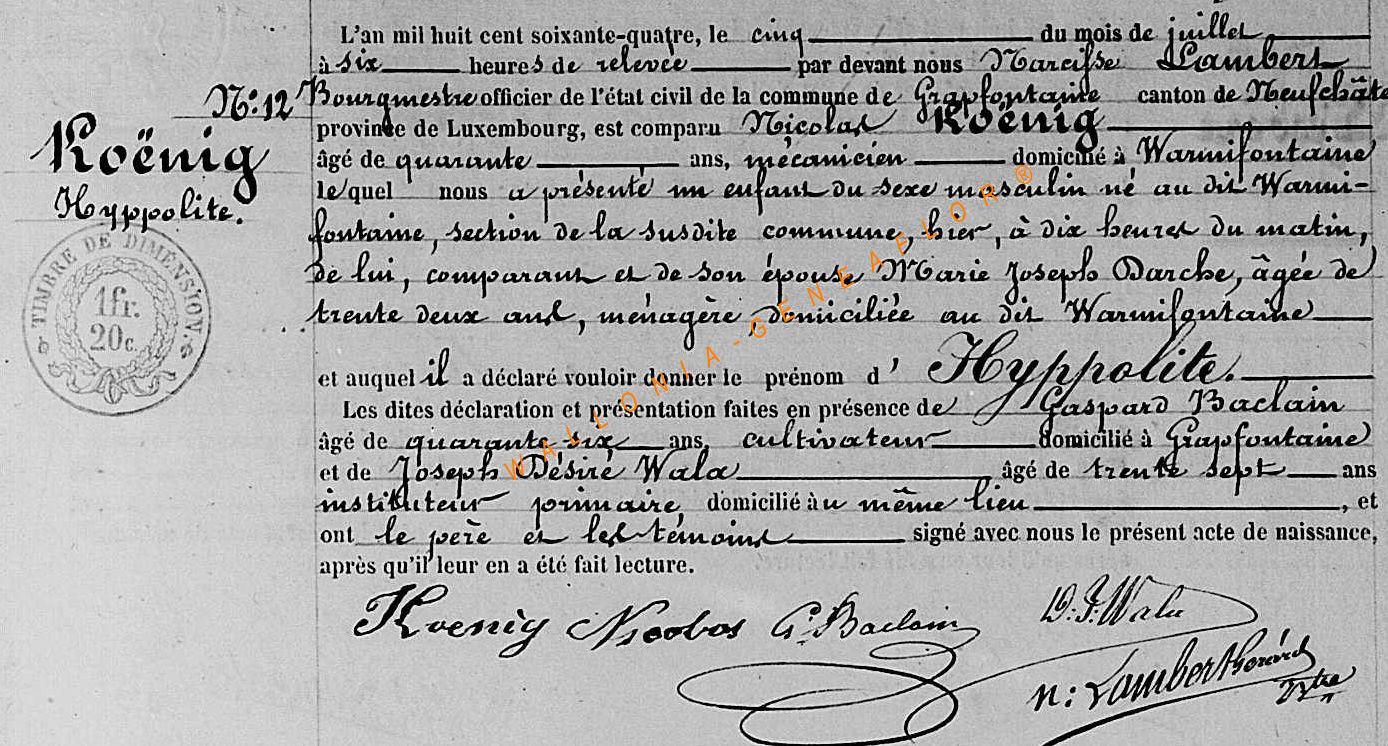 L'an mil huit cent soixante-quatre, le cinq du mois de juillet,
à six heures de relevée par devant nous Narcisse Lambert
N: 12 Bourgmestre officier de l'état civil de la commune de Grapfontaine canton de Neufchâte
Koënig
Hyppolite.
province de Luxembourg, est comparu Nicolas Koënig
âgé de quarante ans, mécanicien domicilié à Warmifontaine
lequel nous a présenté un enfant du sexe masculin né au dit Warmi-
fontaine, section de la susdite commune, hier, à dix heures du matin,
de lui, comparant et de son épouse Marie Joseph Darche, âgée de
trente deux ans, ménagère, domiciliée au dit Warmifontaine
et auquel il a déclaré vouloir donner le prénom d' Hyppolite.
Les dites déclaration et présentation faites en présence de Gaspard Baclain
âgé de quarante six ans, cultivateur domicilié à Grapfontaine
et de Joseph Désiré Wala âgé de trente sept ans
instituteur primaire, domicilié au même lieu, et
ont le père et les témoins signé avec nous le présent acte de naissance,
après qu'il leur en a été fait lecture.
Koenig Nicolas G. Baclain D. J. Wala
n: Lambert
TIMBRE DE DIMENSION.
1fr.
20c.
WALLONIA-GENEAFLOR®